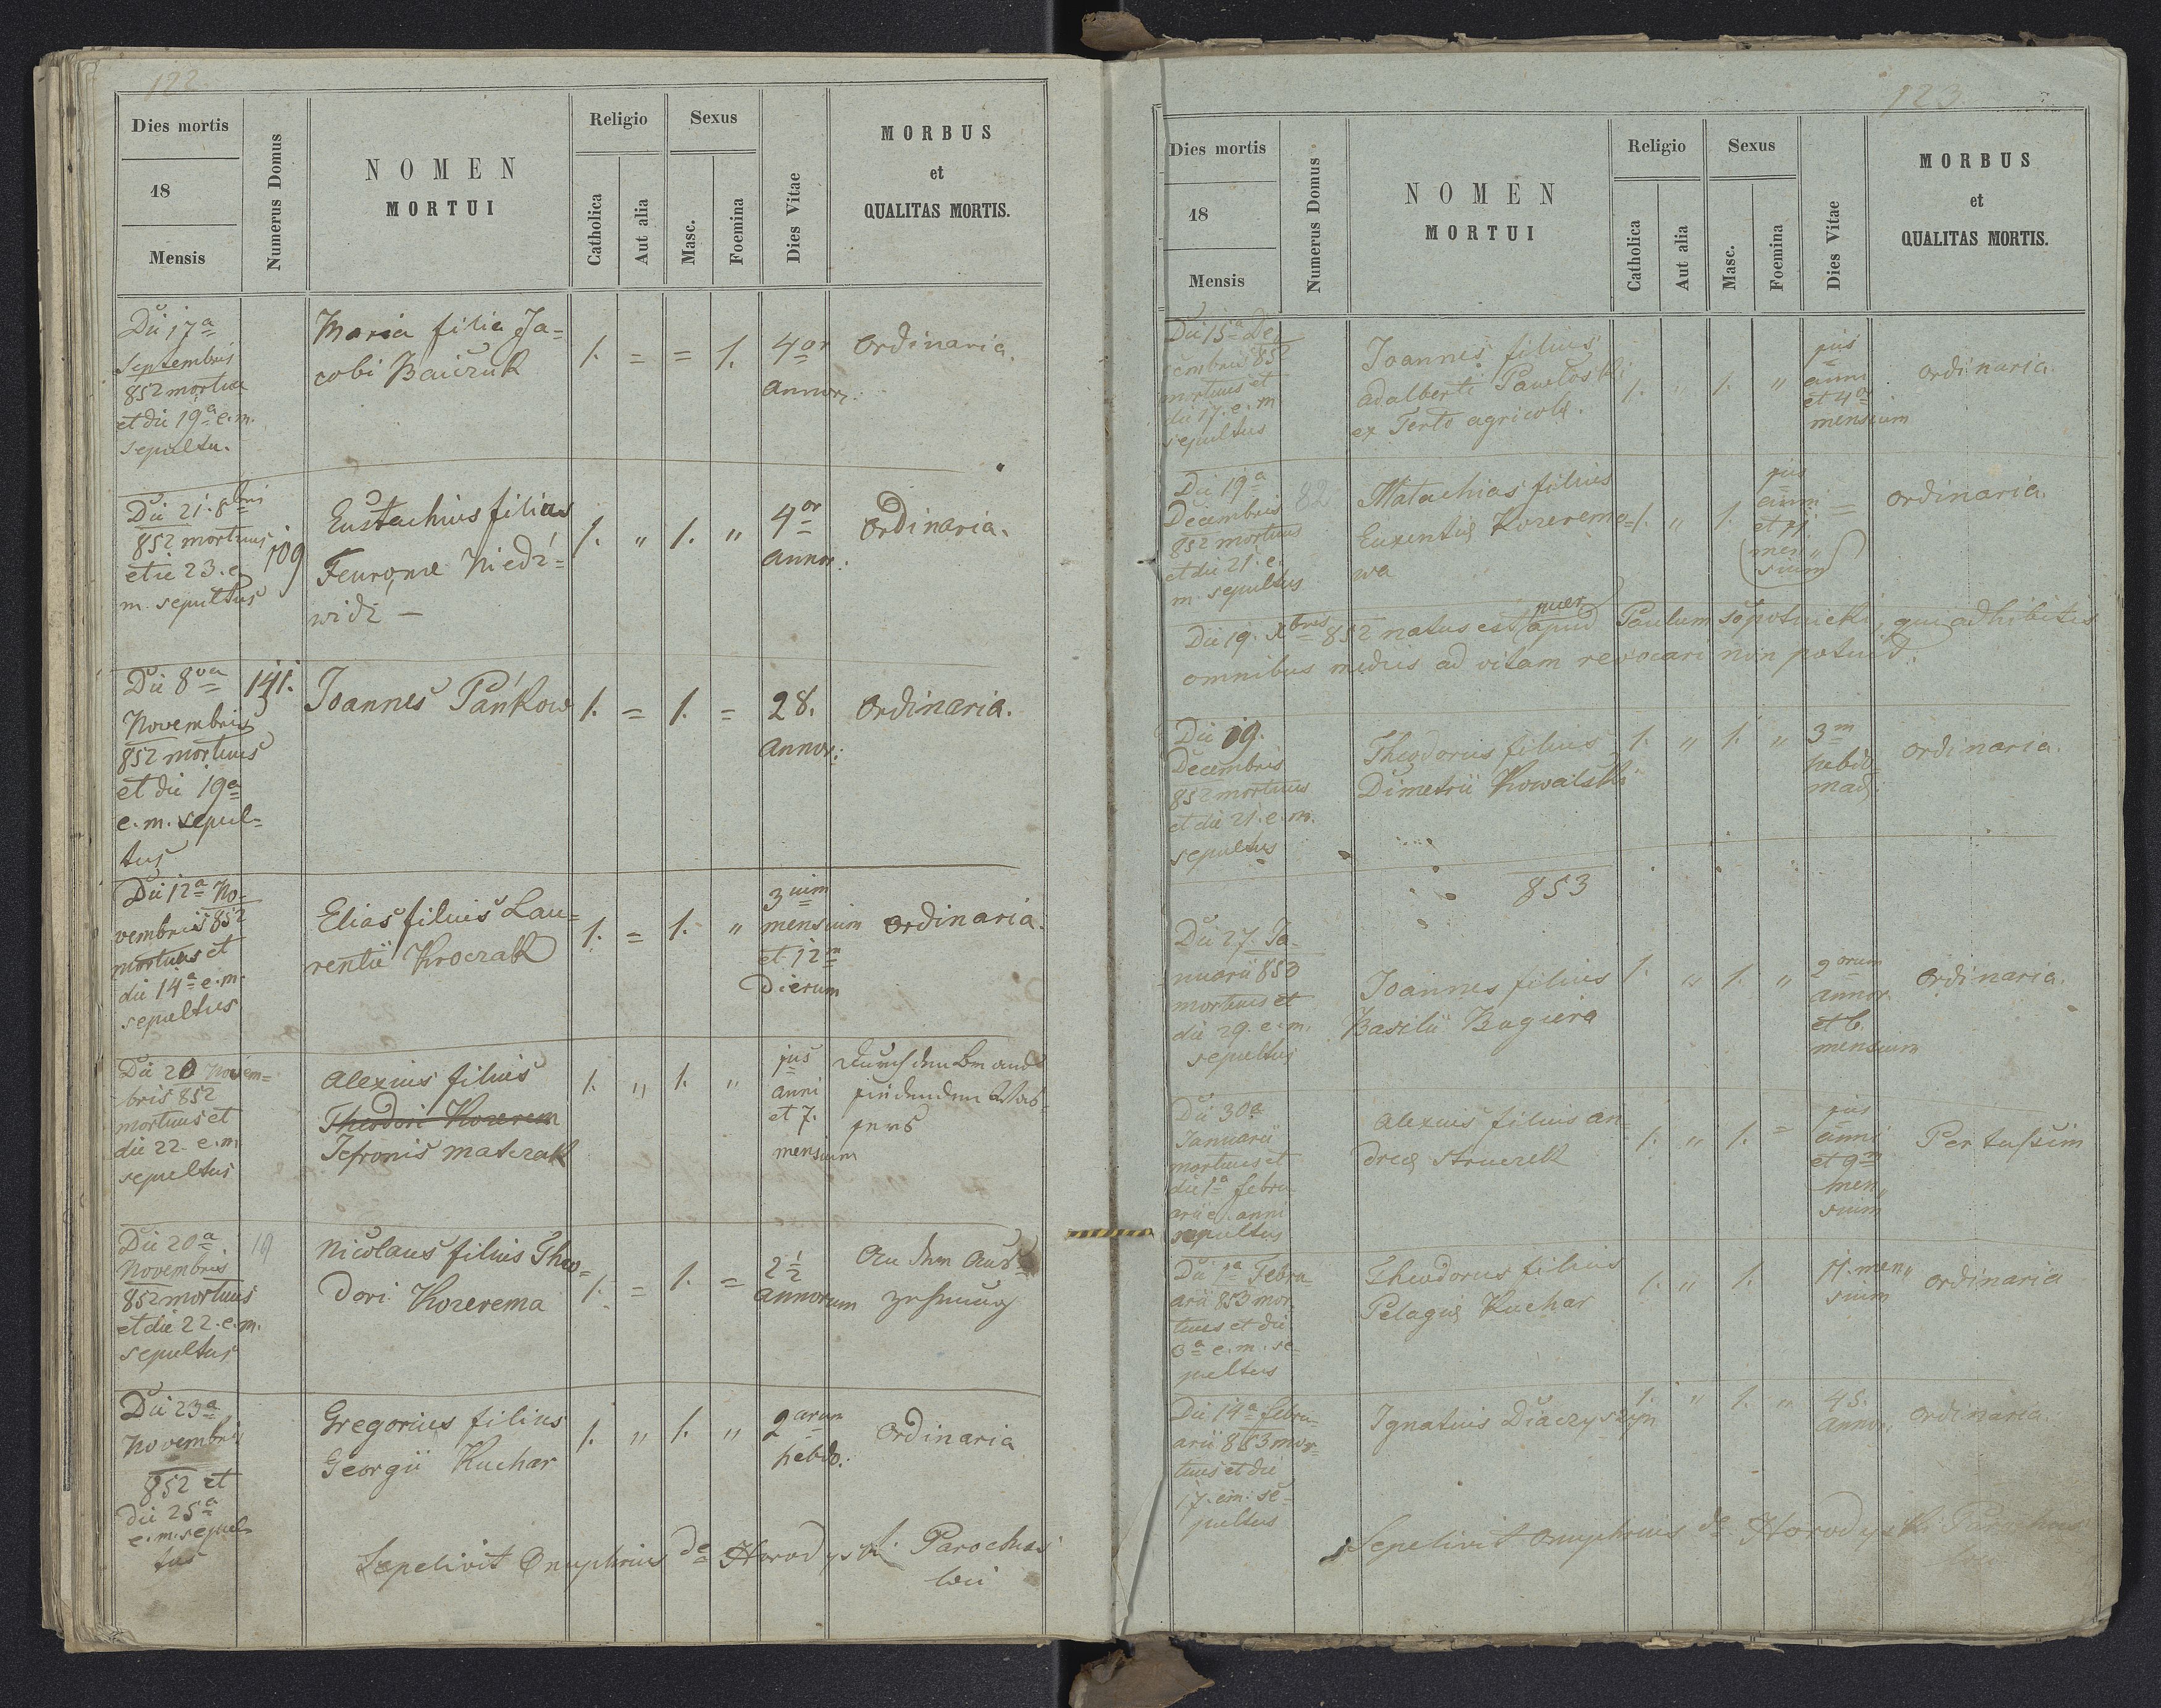 122
Dies mortis
18
Mensis
Numerus Domus
NOMEN
MORTUI
Religio
Catholica
Aut alia
Sexus
Masc.
Foemina
Dies Vitae
MORBUS
et
QUALITAS MORTIS.
Die 17a
Septembris
852 mortua
et die 19a e.m.
sepulta.
Maria filia Ja=
cobi Baiczuk
1. = = 1.
4or
annor:
ordinaria.
Die 21. 8bris
852 mortuus
et ie 23. e.
m. sepultus
109
Eustachius filius
Feuroniae Niedź=
widz —
1. " 1. "
4or
annor:
ordinaria.
Die 8va
Novembris
852 mortuus
et die 19a
e.m. sepul=
tus
141.
Joannes Pańkow
1. = 1. =
28.
annor:
ordinaria.
Die 12a No-
vembris 852
mortuus et
die 14a e.m.
sepultus
Elias filius Lau=
rentii Kroczak
1. = 1. "
3uim
mensium
et 12m
Dierum
ordinaria.
Die 20 Novem=
bris 852
mortuus et
die 22. e.m.
sepultus
Alexius filius
Theodori Kozerem
Jefronis Matczak
1. " 1. "
jus
anni
et 7.
mensium
Die 20a
Novembris
852 mortuus
et die 22. e.m.
sepultus
19
Nicolaus filius Theo=
dori Kozerema
1. = 1. =
2 1/2
annorum
An dem Aus=
zehrung
Die 23a
Novembris
852 et
die 25a
e.m. sepul-
tus
Gregorius filius
Georgii Kuchar
1. " 1. "
2arum
hebdo:
ordinaria
Sepelivit Onuphrius de Horodyski Parochus
loci
123
Dies mortis
18
Mensis
Numerus Domus
NOMEN
MORTUI
Religio
Catholica
Aut alia
Sexus
Masc.
Foemina
Dies Vitae
MORBUS
et
QUALITAS MORTIS.
Die 15a De-
cembris 852
mortuus et
die 17. e.m
sepultus
Joannes filius
Adalberti Pawłoski
ex Terło agricolae.
1. " 1. "
jus
anni
et 4or
mensium
ordinaria.
Die 19a
Decembris
852 mortuus
et die 21. e.
m. sepultus
82
Matachias filius
Euxentii Kozerema=
wa
1. " 1.
jus
anni
et 11
men"
sium
=
ordinaria.
Die 19. Xbris 852 natus est puer apud Paulum Sopotnicki, qui adhibitis
omnibus mediis ad vitam revocari non potuit.
Die 19.
Decembris
852 mortuus
et die 21. e.m.
sepultus
Theodorus filius
Dimetrii Kowalski
1. " 1. "
3m
hebdo-
mad:
ordinaria.
853
Die 27. Ja-
nuarii 853
mortuus et
die 29. e.m.
sepultus
Joannes filius
Basilii Bugiera
1. " 1. "
2orum
annor.
et 6.
mensium
ordinaria.
Die 30a
Januarii
mortuus et
die 1a Febru-
arii ej. anni
sepultus
Alexius filius An-
dreae Struczek
1. " 1. =
jus
anni
et 9m
men"
sium
Per tussim
Die 1a Febru-
arii 853 mor-
tuus et die
3a e.m. se-
pultus
Theodorus filius
Pelagiae Kuchar
1. " 1.
11. men"
sium
ordinaria
Die 14a Febru-
arii 853 mor-
tuus et die
17. em: se-
pultus
Ignatius Diaczyszyn
1. " 1. "
45.
annor:
ordinaria
Sepelivit Onuphrius de Horodyski Parochus
loci